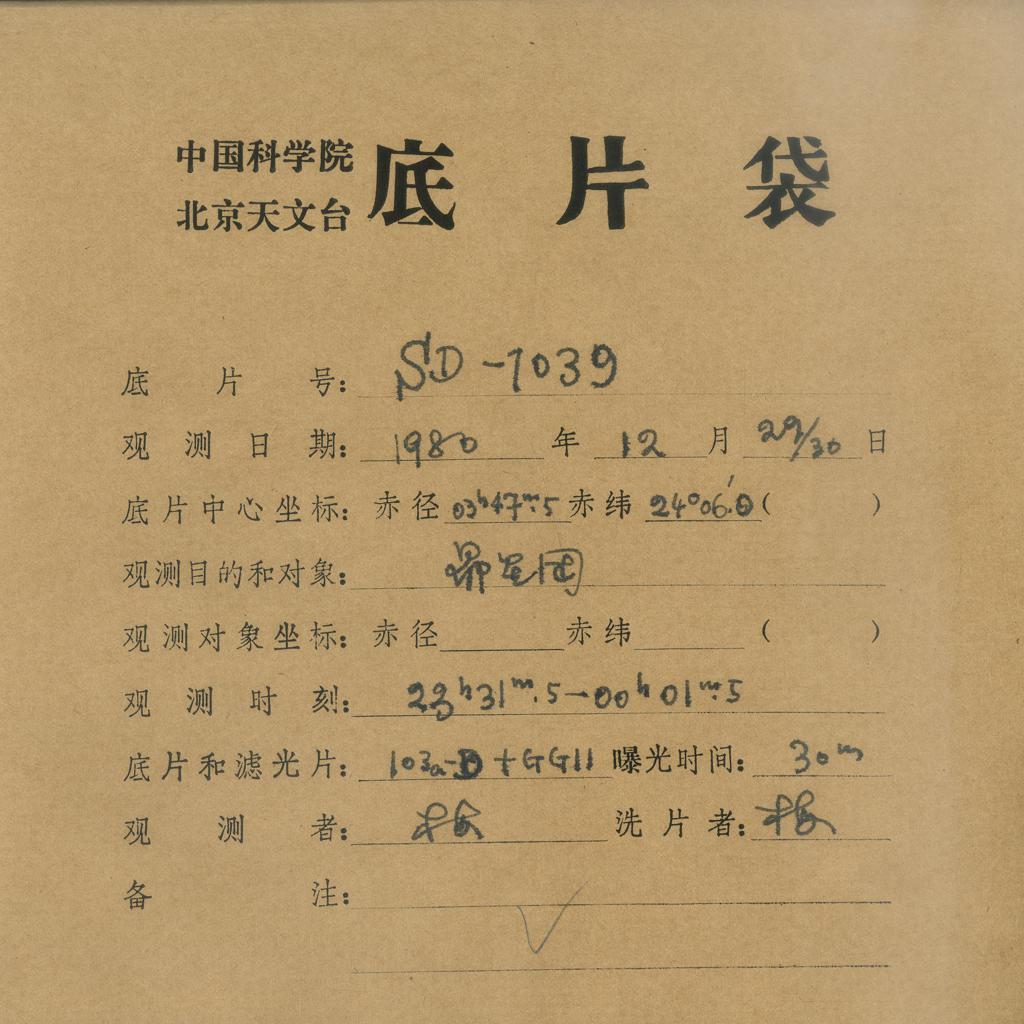 中国科学院
北京天文台
底片袋
底片号: SD-1039
观测日期: 1980 年 12 月 29/30 日
底片中心坐标: 赤径 03h47m.5 赤纬 24°06'.0 ( )
观测目的和对象: 昴星团
观测对象坐标: 赤径 赤纬 ( )
观测时刻: 23h31m.5—00h01m.5
底片和滤光片: 103a-D + GG11 曝光时间: 30m
观测者: 洗片者:
备注: